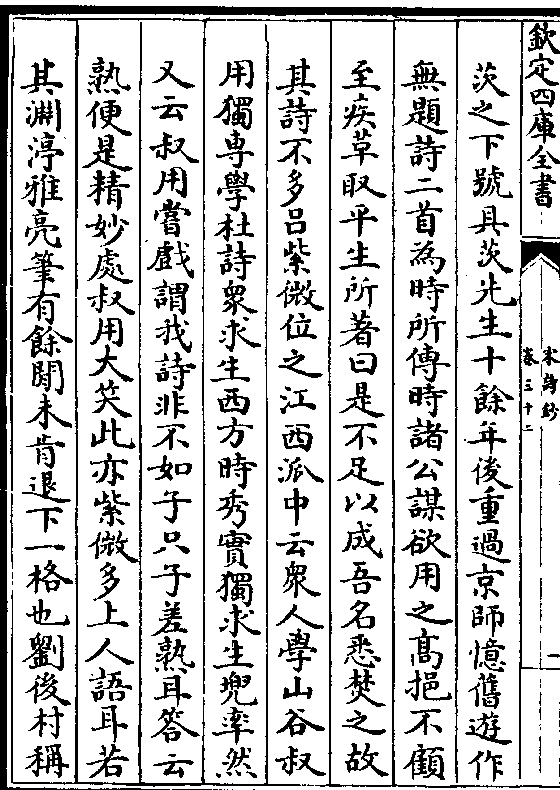 欽定四庫全書
宋詩鈔
卷三十二
一
茨之下號具茨先生十餘年後重過京師憶舊遊作
無題詩二首為時所傳時諸公謀欲用之髙挹不顧
至疾草取平生所著曰是不足以成吾名悉焚之故
其詩不多吕紫微位之江西派中云衆人學山谷叔
用獨専學杜詩衆求生西方時秀實獨求生兜率然
又云叔用嘗戲謂我詩非不如子只子差熟耳答云
熟便是精妙處叔用大笑此亦紫微多上人語耳若
其淵渟雅亮筆有餘閒未肯退下一格也劉後村稱